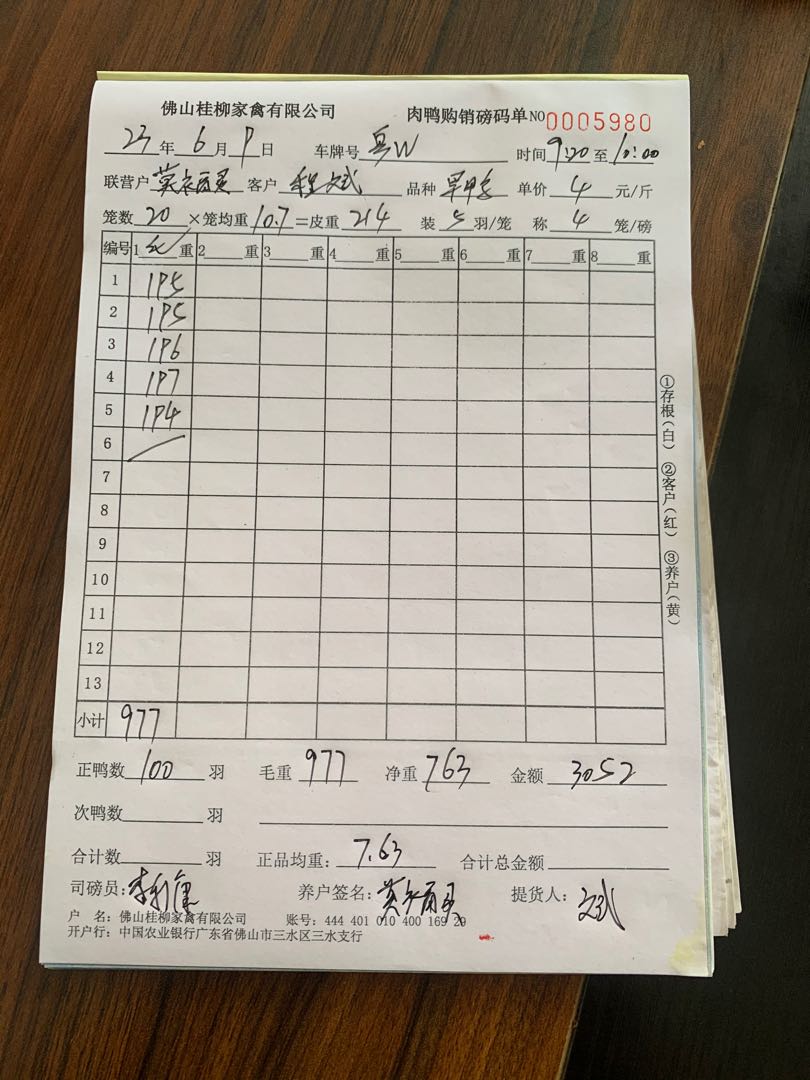 佛山桂柳家禽有限公司 肉鸭购销磅码单 NO 0005980
23年6月9日 车牌号 粤W 时间 9:20 至 10:00
联营户 客户 程文斌 品种 旱鸭 单价 4 元/斤
笼数 20 ×笼均重 10.7 =皮重 214 装 5 羽/笼 称 4 笼/磅
编号 1 重 2 重 3 重 4 重 5 重 6 重 7 重 8 重
1 195
2 195
3 196
4 197
5 194
6
7
8
9
10
11
12
13
小计 977
正鸭数 100 羽 毛重 977 净重 763 金额 3052
次鸭数 羽
合计数 羽 正品均重: 7.63 合计总金额
司磅员: 养户签名: 提货人: 文斌
户 名: 佛山桂柳家禽有限公司 账号: 444 401 010 400 169 29
开户行: 中国农业银行广东省佛山市三水区三水支行
①存根(白) ②客户(红) ③养户(黄)